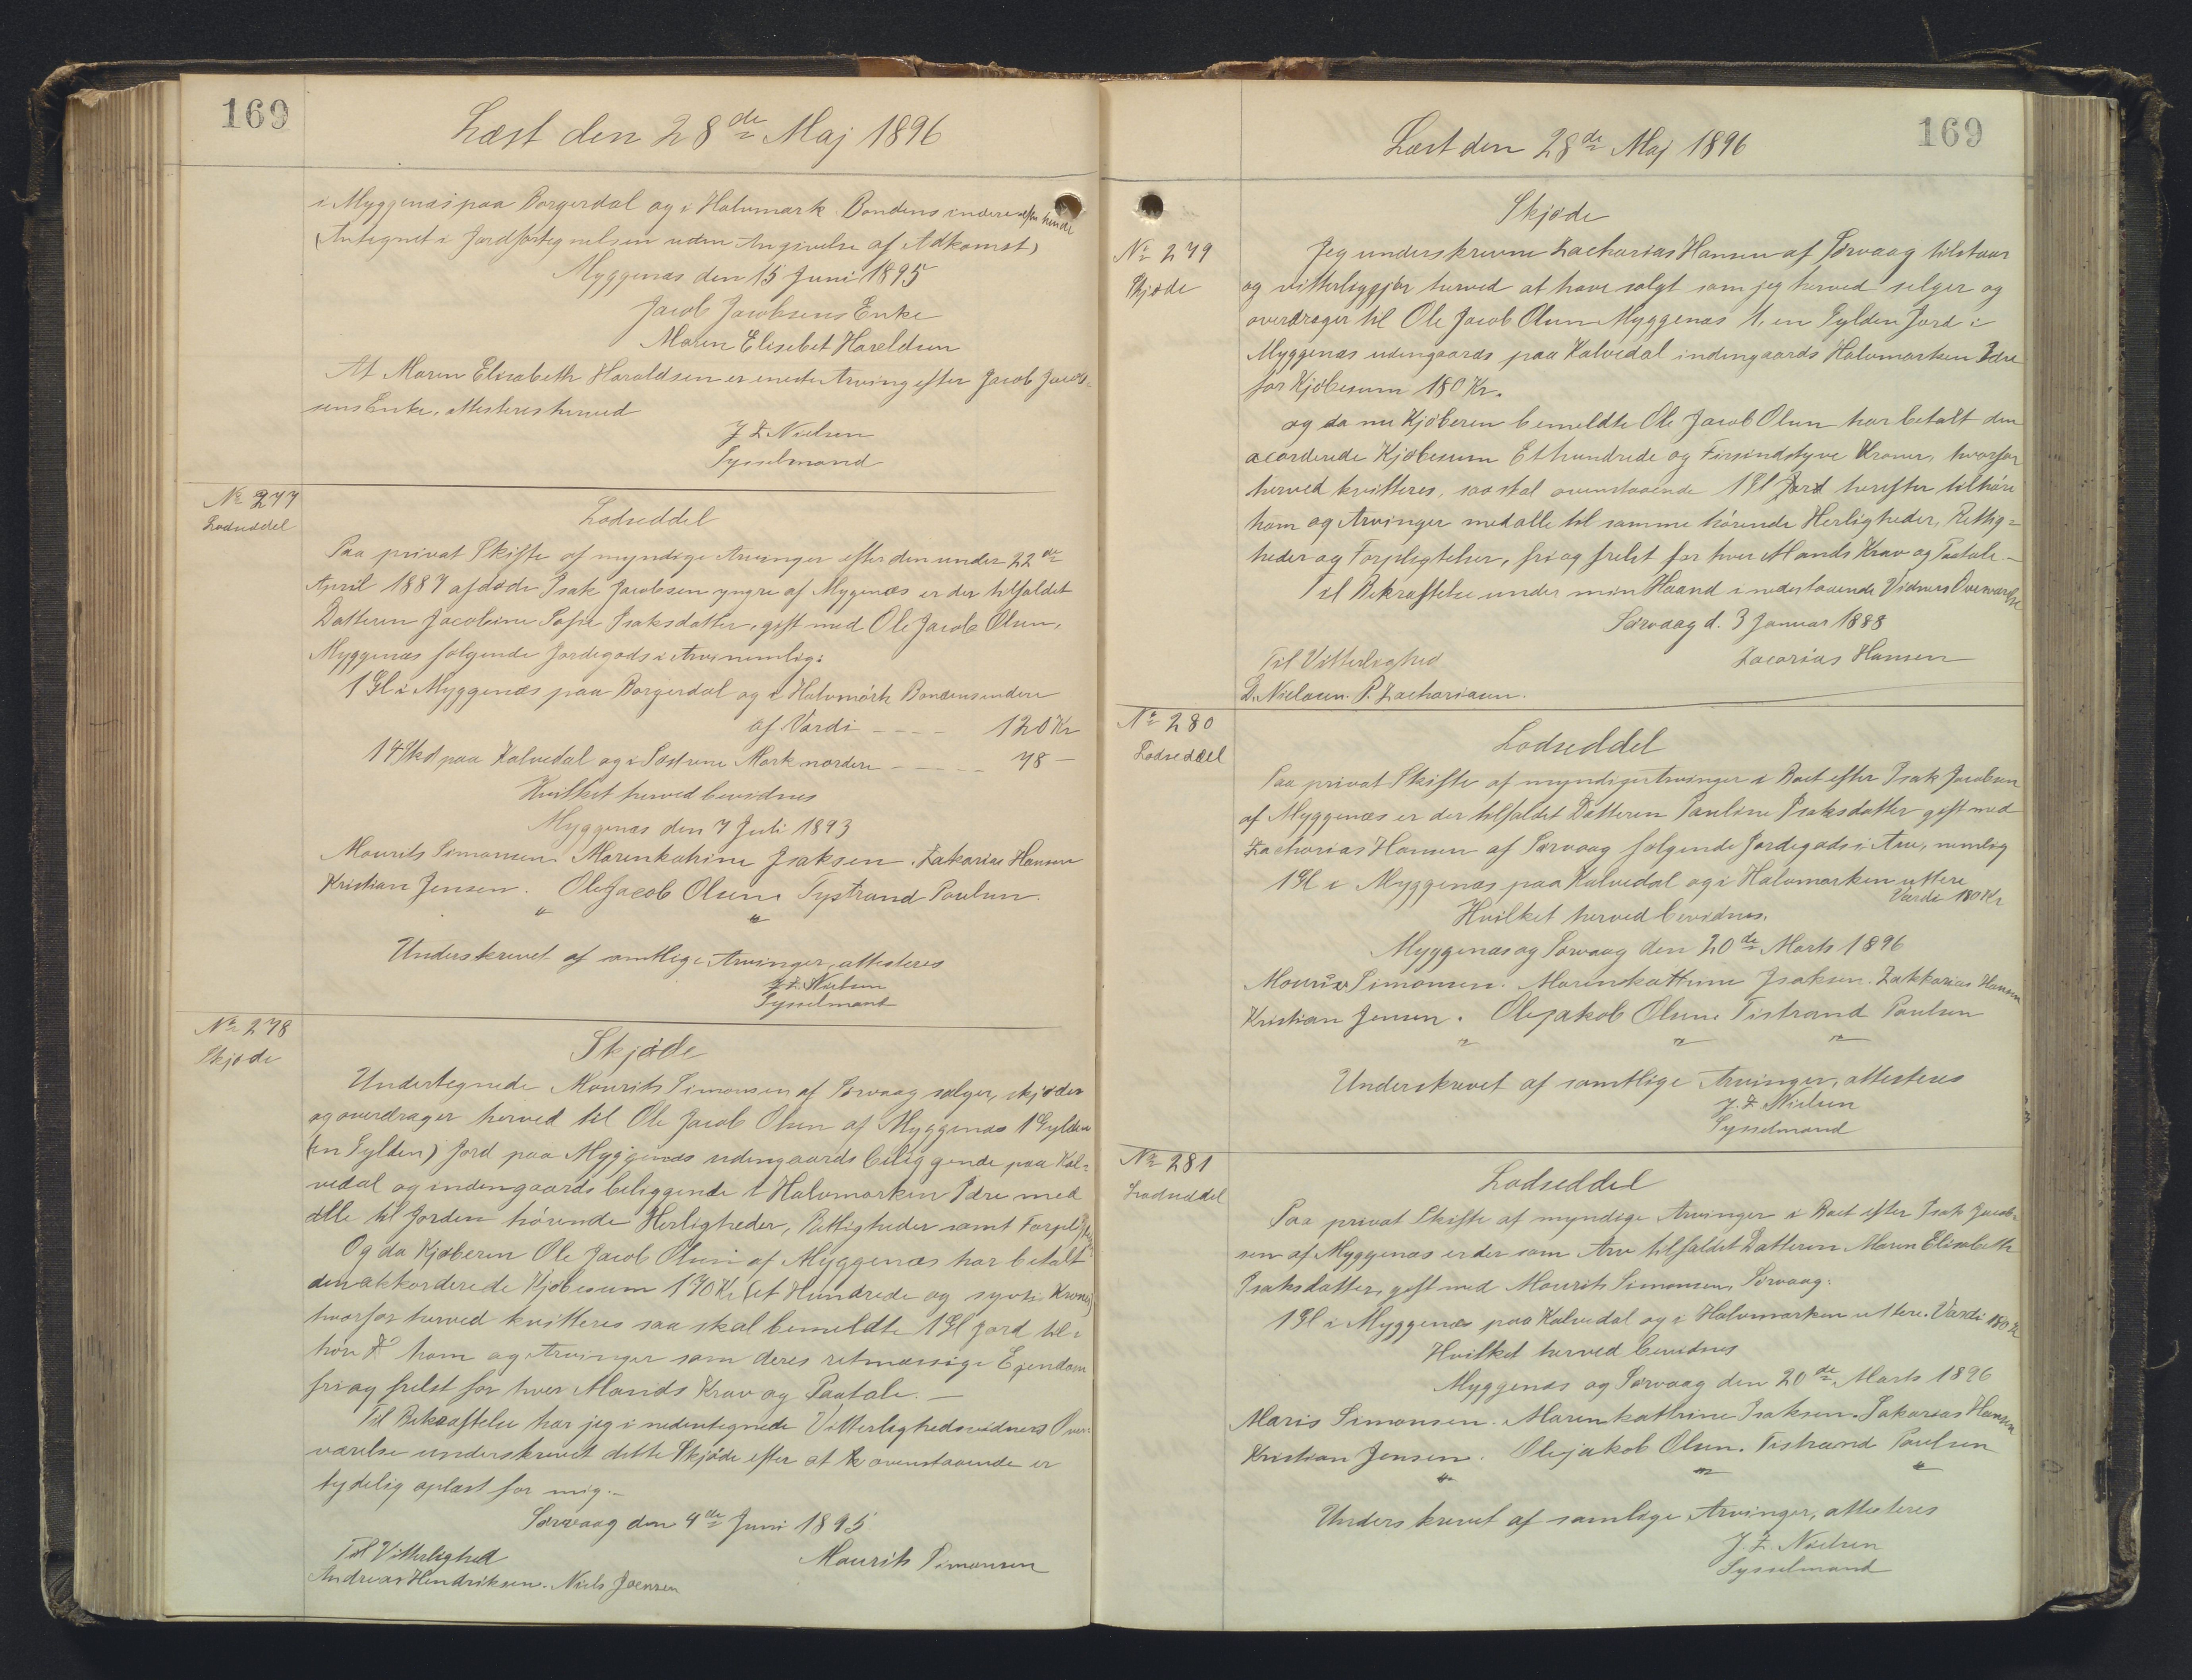 169
Læst den 28de Maj 1896
i Myggenæs paa Borgerdal og i Halvmark Bondens indere efter hende
(Antegnet i Jordfortegnelsen uden Angivelse af Adkomst)
Myggenæs den 15 Juni 1895
Jacob Jacobsens Enke
Maren Elisebet Hareldsen
At Maren Elisabeth Haraldsen er eneste Arving efter Jacob Jacob-
sens Enke, attesteres herved
J Z Nielsen
Sysselmand
No 277
Lodseddel
Lodseddel
Paa privat Skifte af myndige Arvinger efter den under 22de
April 1887 afdøde Isak Jacobsen yngre af Mygenæs er der tilfaldet
Datteren Jacobine Sofie Isaksdatter, gift med Ole Jacob Olsen,
Myggenæs følgende Jordegods i Arv, nemlig:
1 Gl i Myggenæs paa Borgerdal og i Halvmørk Bondens indere
af Værdi - - - - 120 Kr
14 Skd paa Kalvedal og i Søstrene Mark nordere - - - - - 78 -
Hvilket herved bevidnes
Myggenæs den 7 Juli 1893
Mourits Simonsen. Marenkatrine Isaksen. Zakarias Hansen
Kristian Jensen. Ole Jacob Olsen. Tystrand Poulsen.
" "
Underskrevet af samtlige Arvinger, attesteres
J. Z. Nielsen
Sysselmand
No 278
Skjøde
Skjøde
Undertegnede Mourits Simonsen af Sørvaag sælger, skjøder
og overdrager herved til Ole Jacob Olsen af Myggenæs 1 Gylden
(en Gylden) Jord paa Myggenæs udengaards beliggende paa Kal-
vedal og indengaards beliggende i Halvmarken Ydre med
alle til Jorden hørende Herligheder, Rettigheder samt Forpligtelser
Og da Kjøberen Ole Jacob Olsen af Myggenæs har betalt
den akkorderede Kjøbesum 170 Kr (et Hundrede og syvti Kroner)
hvorfor herved kvitteres saa skal bemeldte 1 Gl Jord til-
høre ham og Arvinger som deres retmæssige Ejendom
fri og frelst for hver Mands Krav og Paatale. -
Til Bekræftelse har jeg i nedentegnede Vitterlighedsvidners Over-
værelse underskrevet dette Skjøde efter at ovenstaaende er
tydelig oplæst for mig. -
Sørvaag den 4de Juni 1895
Til Vitterlighed
Mourits Simonsen
Andreas Hendriksen. Niels Joensen
169
Læst den 28de Maj 1896
Skjøde
No 279
Skjøde
Jeg underskrevne Zacharias Hansen af Sørvaag tilstaar
og vitterliggjør herved at have solgt som jeg herved selger og
overdrager til Ole Jacob Olsen Myggenæs 1, en Gylden Jord i
Myggenæs udengaards paa Kalvedal indengaards Halvmarken Ydre
for Kjøbesum 180 Kr.
og da nu Kjøberen bemeldte Ole Jacob Olsen har betalt den
acorderede Kjøbesum Et hundrede og Firsindstyve Kroner, hvorfor
herved kvitteres, saa skal ovenstaaende 1 Gl Jord herefter tilhøre
ham og Arvinger med alle til samme hørende Herligheder, Rettig-
heder og Forpligtelser, fri og frelst for hver Mands Krav og Paatale. -
Til Bekræftelse under min Haand i nedestaaende Vidners Overværelse
Sørvaag d. 3 Januar 1888
Til Vitterlighed
Zacarias Hansen
D. Nielsen. P. Zachariasen.
No 280
Lodseddel
Lodseddel
Paa privat Skifte af myndige Arvinger i Boet efter Isak Jacobsen
af Myggenæs er der tilfaldet Datteren Pauline Isaksdatter gift med
Zacharias Hansen af Sørvaag følgende Jordegods i Arv, nemlig
1 Gl i Myggenæs paa Kalvedal og i Halvmarken uttere
Værdi 180 Kr
Hvilket herved bevidnes.
Myggenæs og Sørvaag den 20de Marts 1896
Mouris Simonsen. Marenkattrine Isaksen. Zakkarias Hansen
Kristian Jensen. Olejakob Olsen. Tistrand Poulsen
" " "
Underskrevet af samtlige Arvinger, attesteres
J. Z. Nielsen
Sysselmand
No 281
Lodseddel
Lodseddel
Paa privat Skifte af myndige Arvinger i Boet efter Isak Jacob-
sen af Myggenæs er der som Arv tilfaldet Datteren Maren Elisabeth
Isaksdatter, gift med Mourits Simonsen, Sørvaag:
1 Gl i Myggenæs paa Kalvedal og i Halvmarken uttere. Værdi 180 Kr
Hvilket herved bevidnes
Myggenæs og Sørvaag den 20de Marts 1896
Maris Simonsen. Marenkathrine Isaksen. Sakarias Hansen
Kristian Jensen. Olejakob Olsen. Tistrand Poulsen
" " "
Underskrevet af samlige Arvinger, attesteres
J. Z. Nielsen
Sysselmand